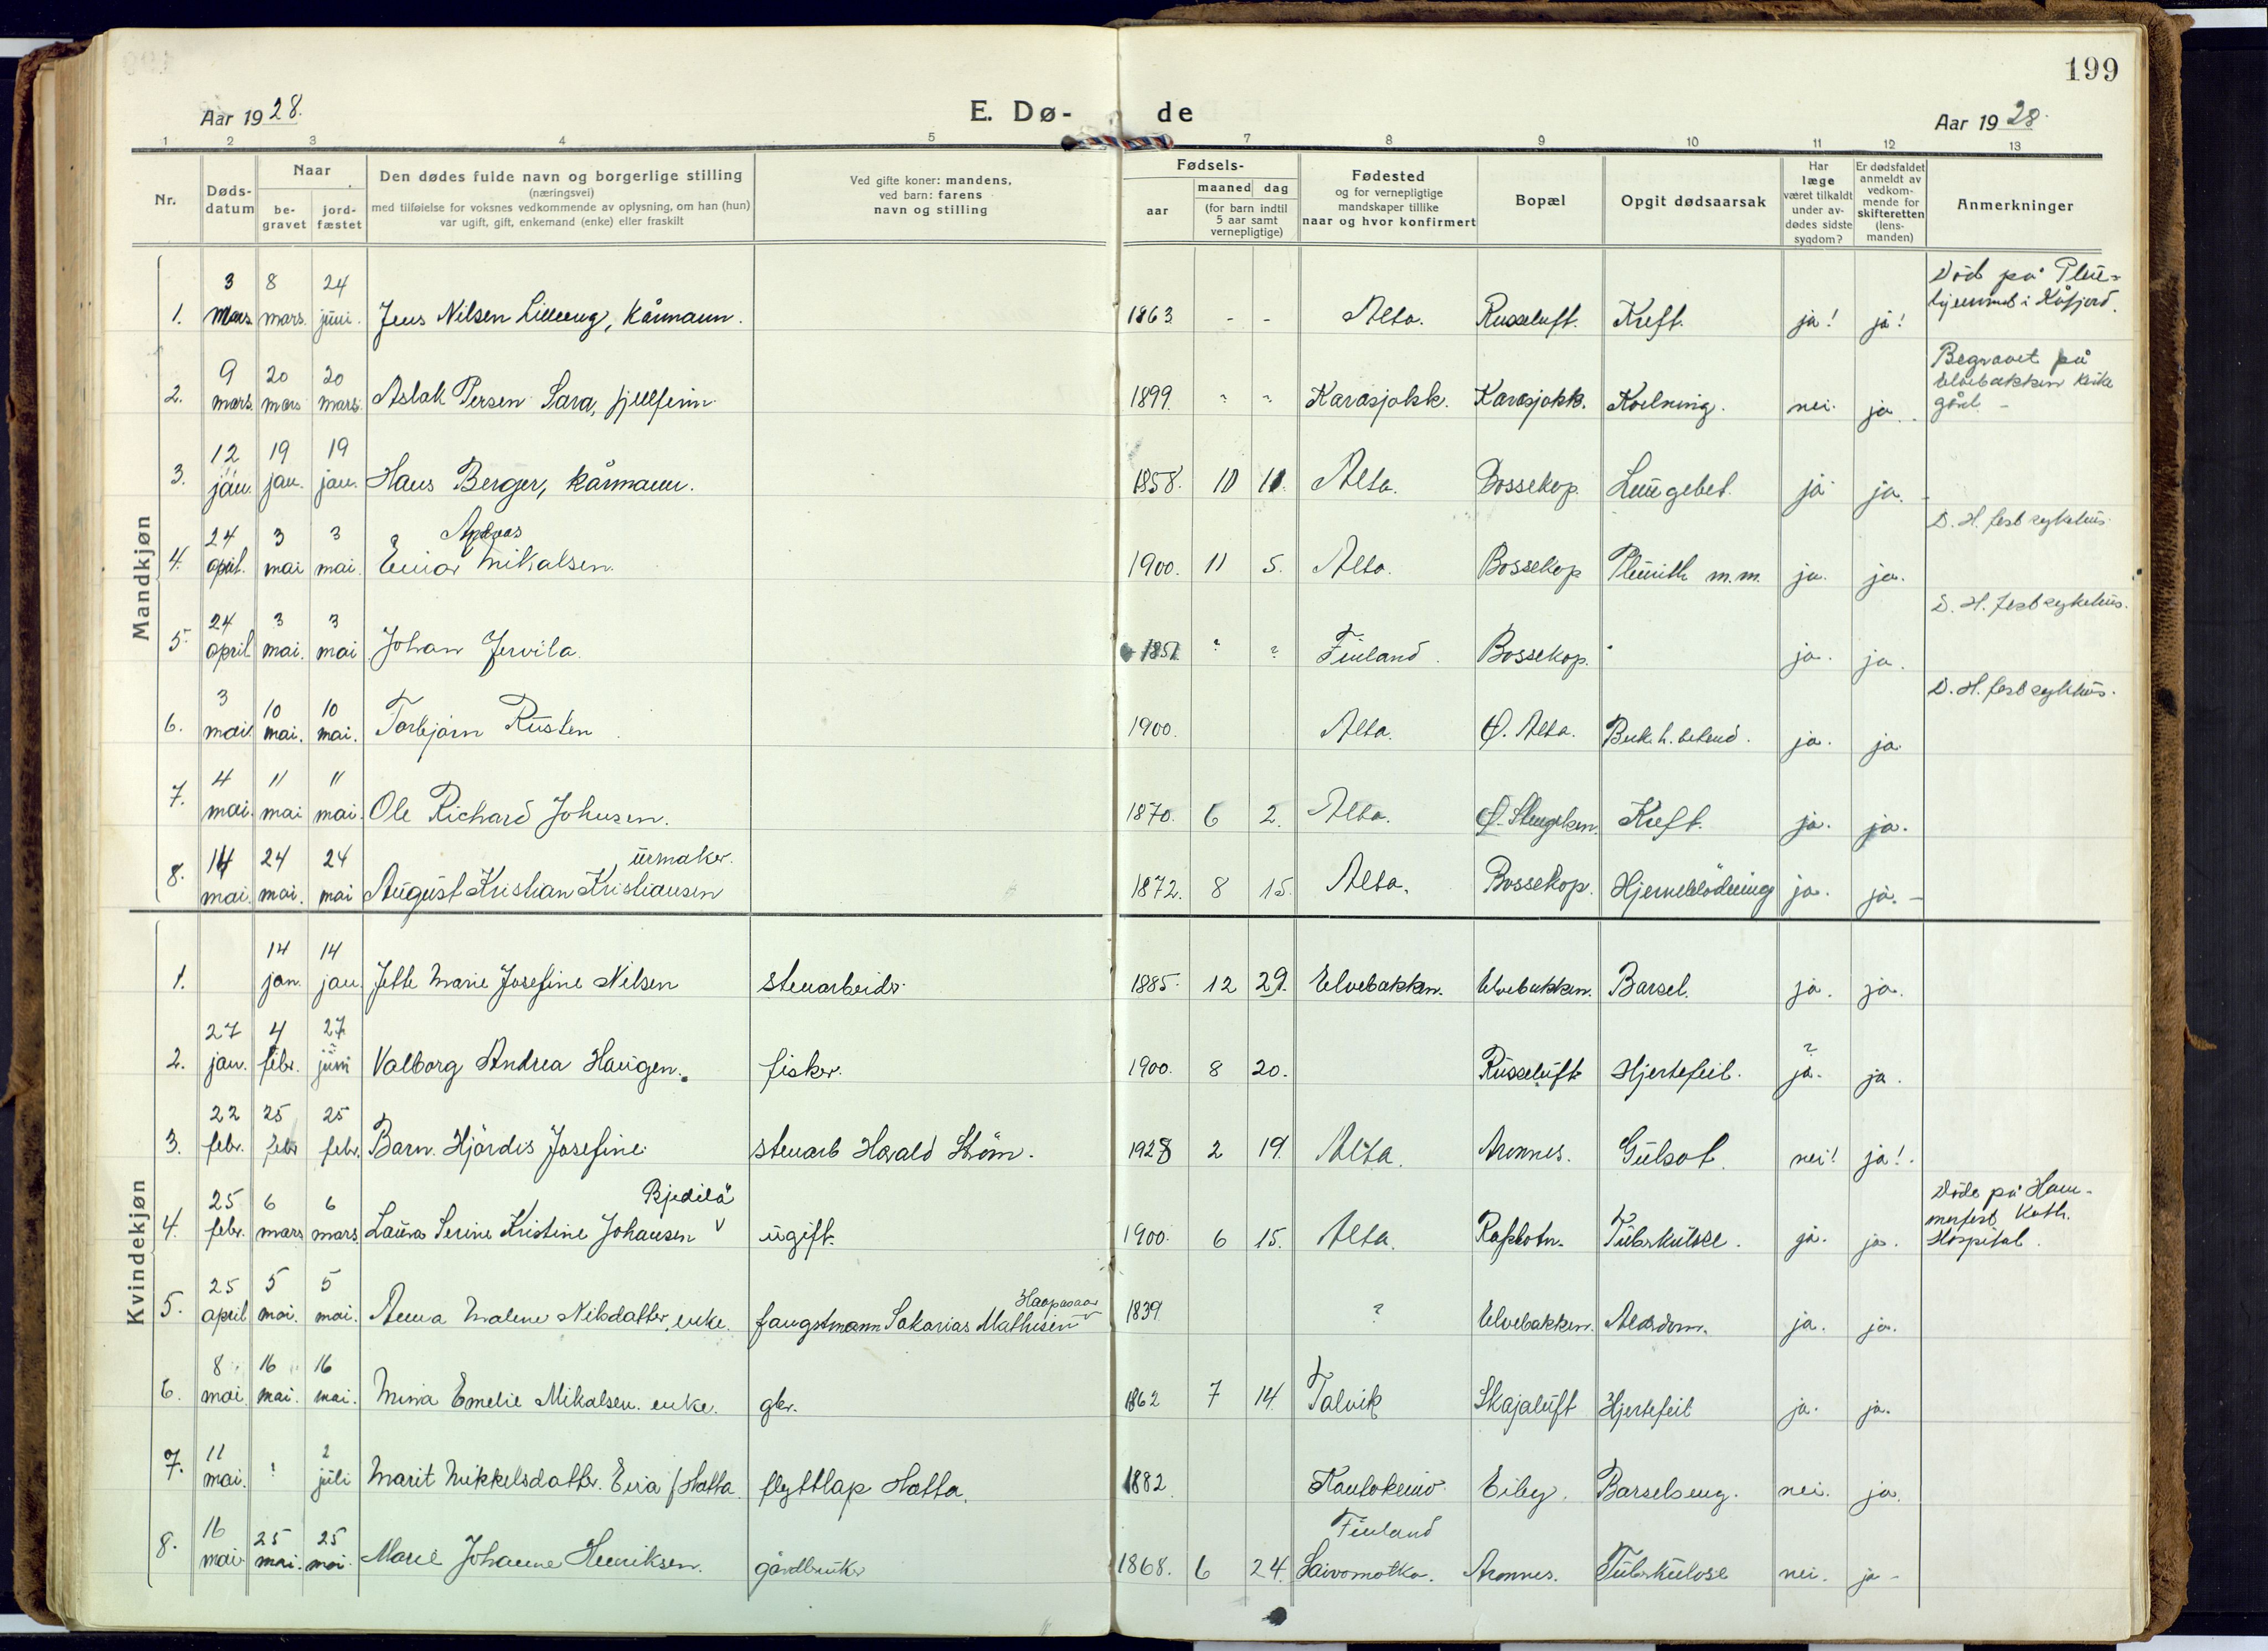 199
Aar 1928.
E. Dø-
de
Aar 1928.
1 2 3 4 5 7 8 9 10 11 12 13
Nr.
Døds-
datum
Naar
be-
gravet
jord-
fæstet
Den dødes fulde navn og borgerlige stilling
(næringsvei)
med tilføielse for voksnes vedkommende av oplysning, om han (hun)
var ugift, gift, enkemand (enke) eller fraskilt
Ved gifte koner: mandens,
ved barn: farens
navn og stilling
Fødsels-
aar
maaned dag
(for barn indtil
5 aar samt
vernepligtige)
Fødested
og for vernepligtige
mandskaper tillike
naar og hvor konfirmert
Bopæl
Opgit dødsaarsak
Har
læge
været tilkaldt
under av-
dødes sidste
sygdom?
Er dødsfaldet
anmeldt av
vedkom-
mende for
skifteretten
(lens-
manden)
Anmerkninger
Mandkjøn
1. 3 mars. 8 mars. 24 juni. Jens Nilsen Lilleeng, kårmann. 1863 - - Alta. Russeluft. Kreft. ja! ja! Död på Pleie-
hjemmet i Kåfjord.
2. 9 mars. 20 mars 20 mars. Aslak Persen Sara, fjellfinn 1899. " " Karasjokk. Karasjokk. Kvelning. nei. ja. Begravet på
Elvebakken kirke
gård. -
3. 12 jan. 19 jan. 19 jan. Hans Berger, kårmann. 1858. 10 11. Alta. Bossekop. Lungebet. ja ja.
4. 24 april. 3 mai 3 mai. Einar Andreas Mikalsen. 1900. 11 5. Alta. Bossekop Pleurith m.m. ja. ja. D. H.fest sykehus.
5. 24 april 3 mai. 3 mai Johan Jervila. 1851. ? ? Finland. Bossekop. ja. ja. D. H.fest sykehus.
6. 3 mai. 10 mai. 10 mai. Torbjørn Rusten 1900. Alta. Ø. Alta. ja. ja D. H.fest sykehus.
7. 4 mai. 11 mai 11 mai. Ole Richard Johnsen. 1870. 6 2. Alta. Kreft. ja. ja.
8. 14 mai. 24 mai. 24 mai August Kristian Kristiansen, urmaker. 1872. 8 15. Alta. Bossekop. Hjerneblödning ja. ja. -
Kvindekjøn
1. 14 jan. 14 jan. Jette Marie Josefine Nilsen stenarbeider. 1885. 12 29. Elvebakken. Elvebakken. Barsel. ja. ja.
2. 27 jan. 4 febr. 27 juni Valborg Andrea Haugen. fisker. 1900. 8 20. Russeluft Hjertefeil. ? ja. ja.
3. 22 febr. 25 febr 25 febr. Barn. Hjördis Josefine. stenarb Harald Ström. 1928 2 19. Alta. Aronnes. Gulsot. nei! ja!.
4. 25 febr. 6 mars 6 mars. Laura Serine Kristine Johansen v Bjedilä ugift. 1900. 6 15. Alta. Rafsbotn. Tuberkulose. ja. ja. Döde på Ham-
merfest Kath.
Hospital.
5. 25 april 5 mai. 5 mai. Anna Malene Nilsdatter, enke. fangstmann Sakarias Mathisen v Haapasaar 1839 ? Elvebakken. Alderdom. ja. ja.
6. 8 mai 16 mai. 16 mai. Mina Emelie Mikalsen. enke. gbr. 1862 7 14. Talvik Skajaluft Hjertefeil ja. ja.
7. 11 mai. ! 2 juli Marit Mikkelsdatter. Eira f Hætta. flyttlap Hætta. 1882. Kautokeino. Eiby. Barselseng. nei. ja.
8. 16 mai. 25 mai. 25 mai. Marie Johanne Henriksen. gårdbruker 1868. 6 24. Finland
Saivomotka. Aronnes. Tuberkulose nei. ja -